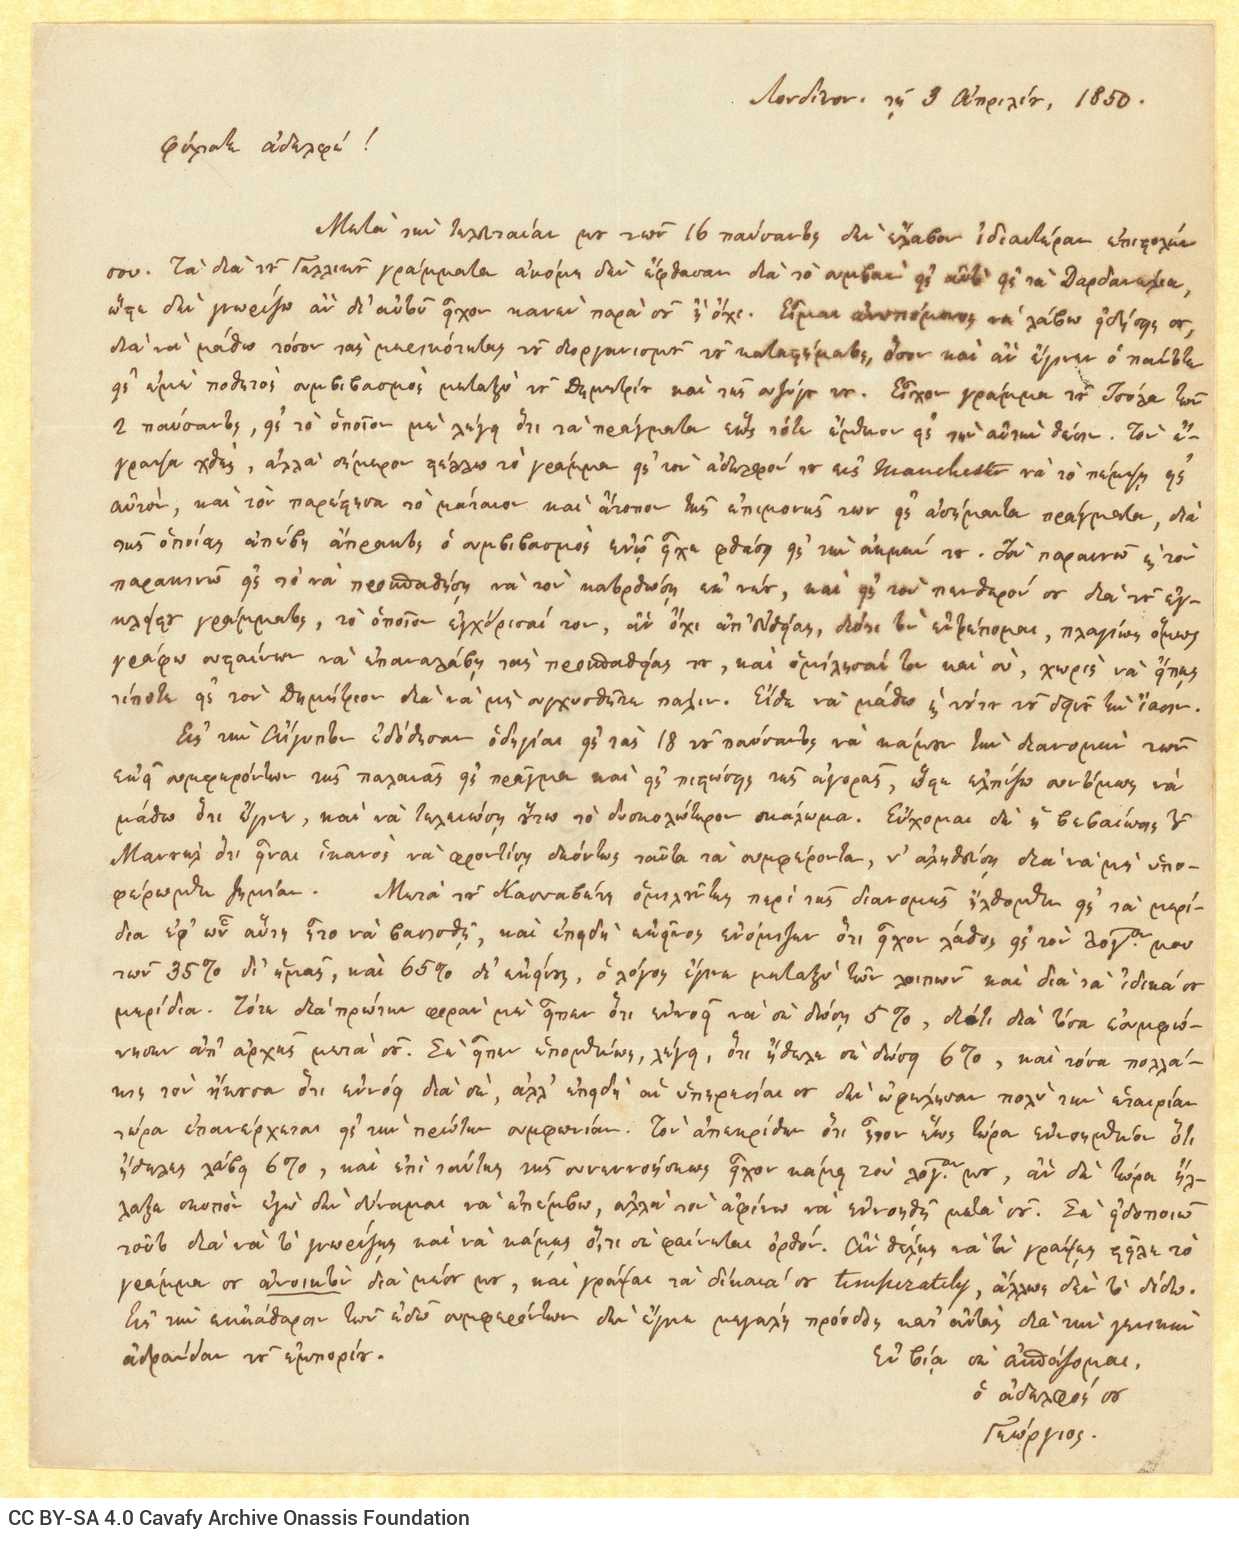 Λονδίνον. τῇ 3 Ἀπριλίου, 1850.
Φίλτατε ἀδελφέ!
Μετὰ τὴν τελευταίαν μου τῶν 16 παύσαντος δὲν ἔλαβον ἰδιαιτέραν ἐπιστολήν
σου. Τὰ διὰ τοῦ Γαλλικοῦ γράμματα ἀκόμη δὲν ἔφθασαν διὰ τὸ συμβὰν εἰς αὐτὸ εἰς τὰ Δαρδανέλια,
ὥστε δὲν γνωρίζω ἂν δι' αὐτοῦ ἦχον κανὲν παρὰ σοῦ ἢ ὄχι. Εἶμαι ἀνυπόμονος νὰ λάβω εἰδήσεις σου,
διὰ νὰ μάθω τόσον τὰς μερικότητας τοῦ διοργανισμοῦ τοῦ καταστήματος, ὅσον καὶ ἂν ἔγινεν ὁ
εἰς ἐμὲ ποθητὸς συμβιβασμὸς μεταξὺ τοῦ Δημητρίου καὶ τῆς συζύγου του. Εἶχον γράμμα τοῦ Τσόλα τῶν
2 παύσαντος, εἰς τὸ ὁποῖον μὲ λέγει ὅτι τὰ πράγματα ἕως τότε ἔμενον εἰς τὴν αὐτὴν θέσιν. Τὸν ἔ-
γραψα χθές, ἀλλὰ σήμερον στέλλω τὸ γράμμα εἰς τὸν ἀδελφόν του εἰς Manchester νὰ τὸ πέμψῃ εἰς
αὐτόν, καὶ τὸν παρέστησα τὸ μάταιον καὶ ἄτοπον τῆς ἐπιμονῆς των εἰς ἀσήμαντα πράγματα, διὰ
τῆς ὁποίας ἀπέβη ἄπρακτος ὁ συμβιβασμὸς ἐνῷ εἶχε φθάσῃ εἰς τὴν ἀκμήν του. Τὸν παραινῶ ἢ τὸν
παρακινῶ εἰς τὸ νὰ προσπαθήσῃ νὰ τὸν κατορθώσῃ ἐκ νέου, καὶ εἰς τὸν πενθερόν σου διὰ τοῦ ἐγ-
κλείστου γράμματος, τὸ ὁποῖον ἐγχείρισαί τον, ἂν ὄχι ἀπ' εὐθείας, διότι τὸν ἐντρέπομαι, πλαγίως ὅμως
γράφω συσταίνων νὰ ἐπαναλάβῃ τὰς προσπαθείας του, καὶ ὁμίλησαί τον καὶ σύ, χωρὶς νὰ εἴπῃς
τίποτε εἰς τὸν Δημήτριον διὰ νὰ μὴ συγχυσθῆτε πάλιν. Εἴθε νὰ μάθω ἢ τούτου τοῦ δεινοῦ τὴν ἴασιν.
Εἰς τὴν Αἴγυπτον ἐδόθησαν ὁδηγίαι εἰς τὰς 18 τοῦ παύσαντος νὰ κάμουν τὴν διανομὴν τῶν
ἐκεῖ συμφερόντων τῆς παλαιᾶς εἰς πρᾶγμα καὶ εἰς πιστώσεις τῆς ἀγορᾶς, ὥστε ἐλπίζω συντόμως νὰ
μάθω ὅτι ἔγινεν, καὶ νὰ τελειώσῃ οὕτω τὸ δυσκολώτερον σκάλωμα. Εὔχομαι δὲ ἡ βεβαίωσις τοῦ
ὅτι εἶναι ἱκανὸς νὰ φροντίσῃ δεόντως ταῦτα τὰ συμφέροντα, ν' ἀληθεύσῃ διὰ νὰ μὴ ὑπο-
φέρωμεν ζημίαν. Μετὰ τοῦ Κασσαβέτη ὁμιλοῦντες περὶ τῆς διανομῆς ἤλθομεν εἰς τὰ μερί-
δια ἐφ' ὧν αὕτη ἔπρεπε νὰ βασισθῇ, καὶ ἐπειδὴ ἐκεῖνος ἐνόμιζεν ὅτι εἶχον λάθος εἰς τὸν λογ/σμόν μου
τῶν 35% δι' ἡμᾶς, καὶ 65% δι' ἐκείνους, ὁ λόγος ἔγινε μεταξὺ τῶν λοιπῶν καὶ διὰ τὰ ἰδικά σου
μερίδια. Τότε διὰ πρώτην φορὰν μὲ εἶπεν ὅτι ἐννοεῖ νὰ σὲ δώσῃ 5%, διότι διὰ τόσα ἐσυμφώ-
νησεν ἀπ' ἀρχῆς μετὰ σοῦ. Σὲ εἶπεν ἑπομένως, λέγει, ὅτι ἤθελε σὲ δώσῃ 6%, καὶ τόσα πολλά-
κις τὸν ἤκουσα ὅτι ἐννοεῖ διὰ σέ, ἀλλ' ἐπειδὴ αἱ ὑπηρεσίαι σου δὲν ὠφέλησαν πολὺ τὴν ἑταιρίαν
τώρα ἐπανέρχεται εἰς τὴν πρώτην συμφωνίαν. Τὸν ἀπεκρίθην ὅτι ἦτον ἕως τώρα ἐννοημένον ὅτι
ἤθελες λάβῃ 6%, καὶ ἐπὶ ταύτης τῆς συνεννοήσεως εἶχον κάμῃ τὸν λογ/σμόν μου, ἂν δὲ τώρα ἤλ-
λαξε σκοπὸν ἐγὼ δὲν δύναμαι νὰ ἐπέμβω, ἀλλὰ τὸν ἀφίνω νὰ ἐννοηθῇ μετὰ σοῦ. Σὲ εἰδοποιῶ
τοῦτο διὰ νὰ τὸ γνωρίζῃς καὶ νὰ κάμῃς ὅ,τι σὲ φαίνεται ὀρθόν. Ἂν θέλῃς νὰ τὸν γράψῃς στεῖλε τὸ
γράμμα σου ἀνοικτὸν διὰ μέσου μου, καὶ γράψαι τὰ δίκαιά σου temperately, ἄλλως δὲν τὸ δίδω.
Εἰς τὴν ἐκκαθάρισιν τῶν ἐδῶ συμφερόντων δὲν ἔγινε μεγάλη πρόοδος κατ' αὐτὰς διὰ τὴν γενικὴν
ἀδράνειαν τοῦ ἐμπορίου.
Ἐν βίᾳ σὲ ἀσπάζομαι,
ὁ ἀδελφός σου
Γεώργιος.
CC BY-SA 4.0 Cavafy Archive Onassis Foundation